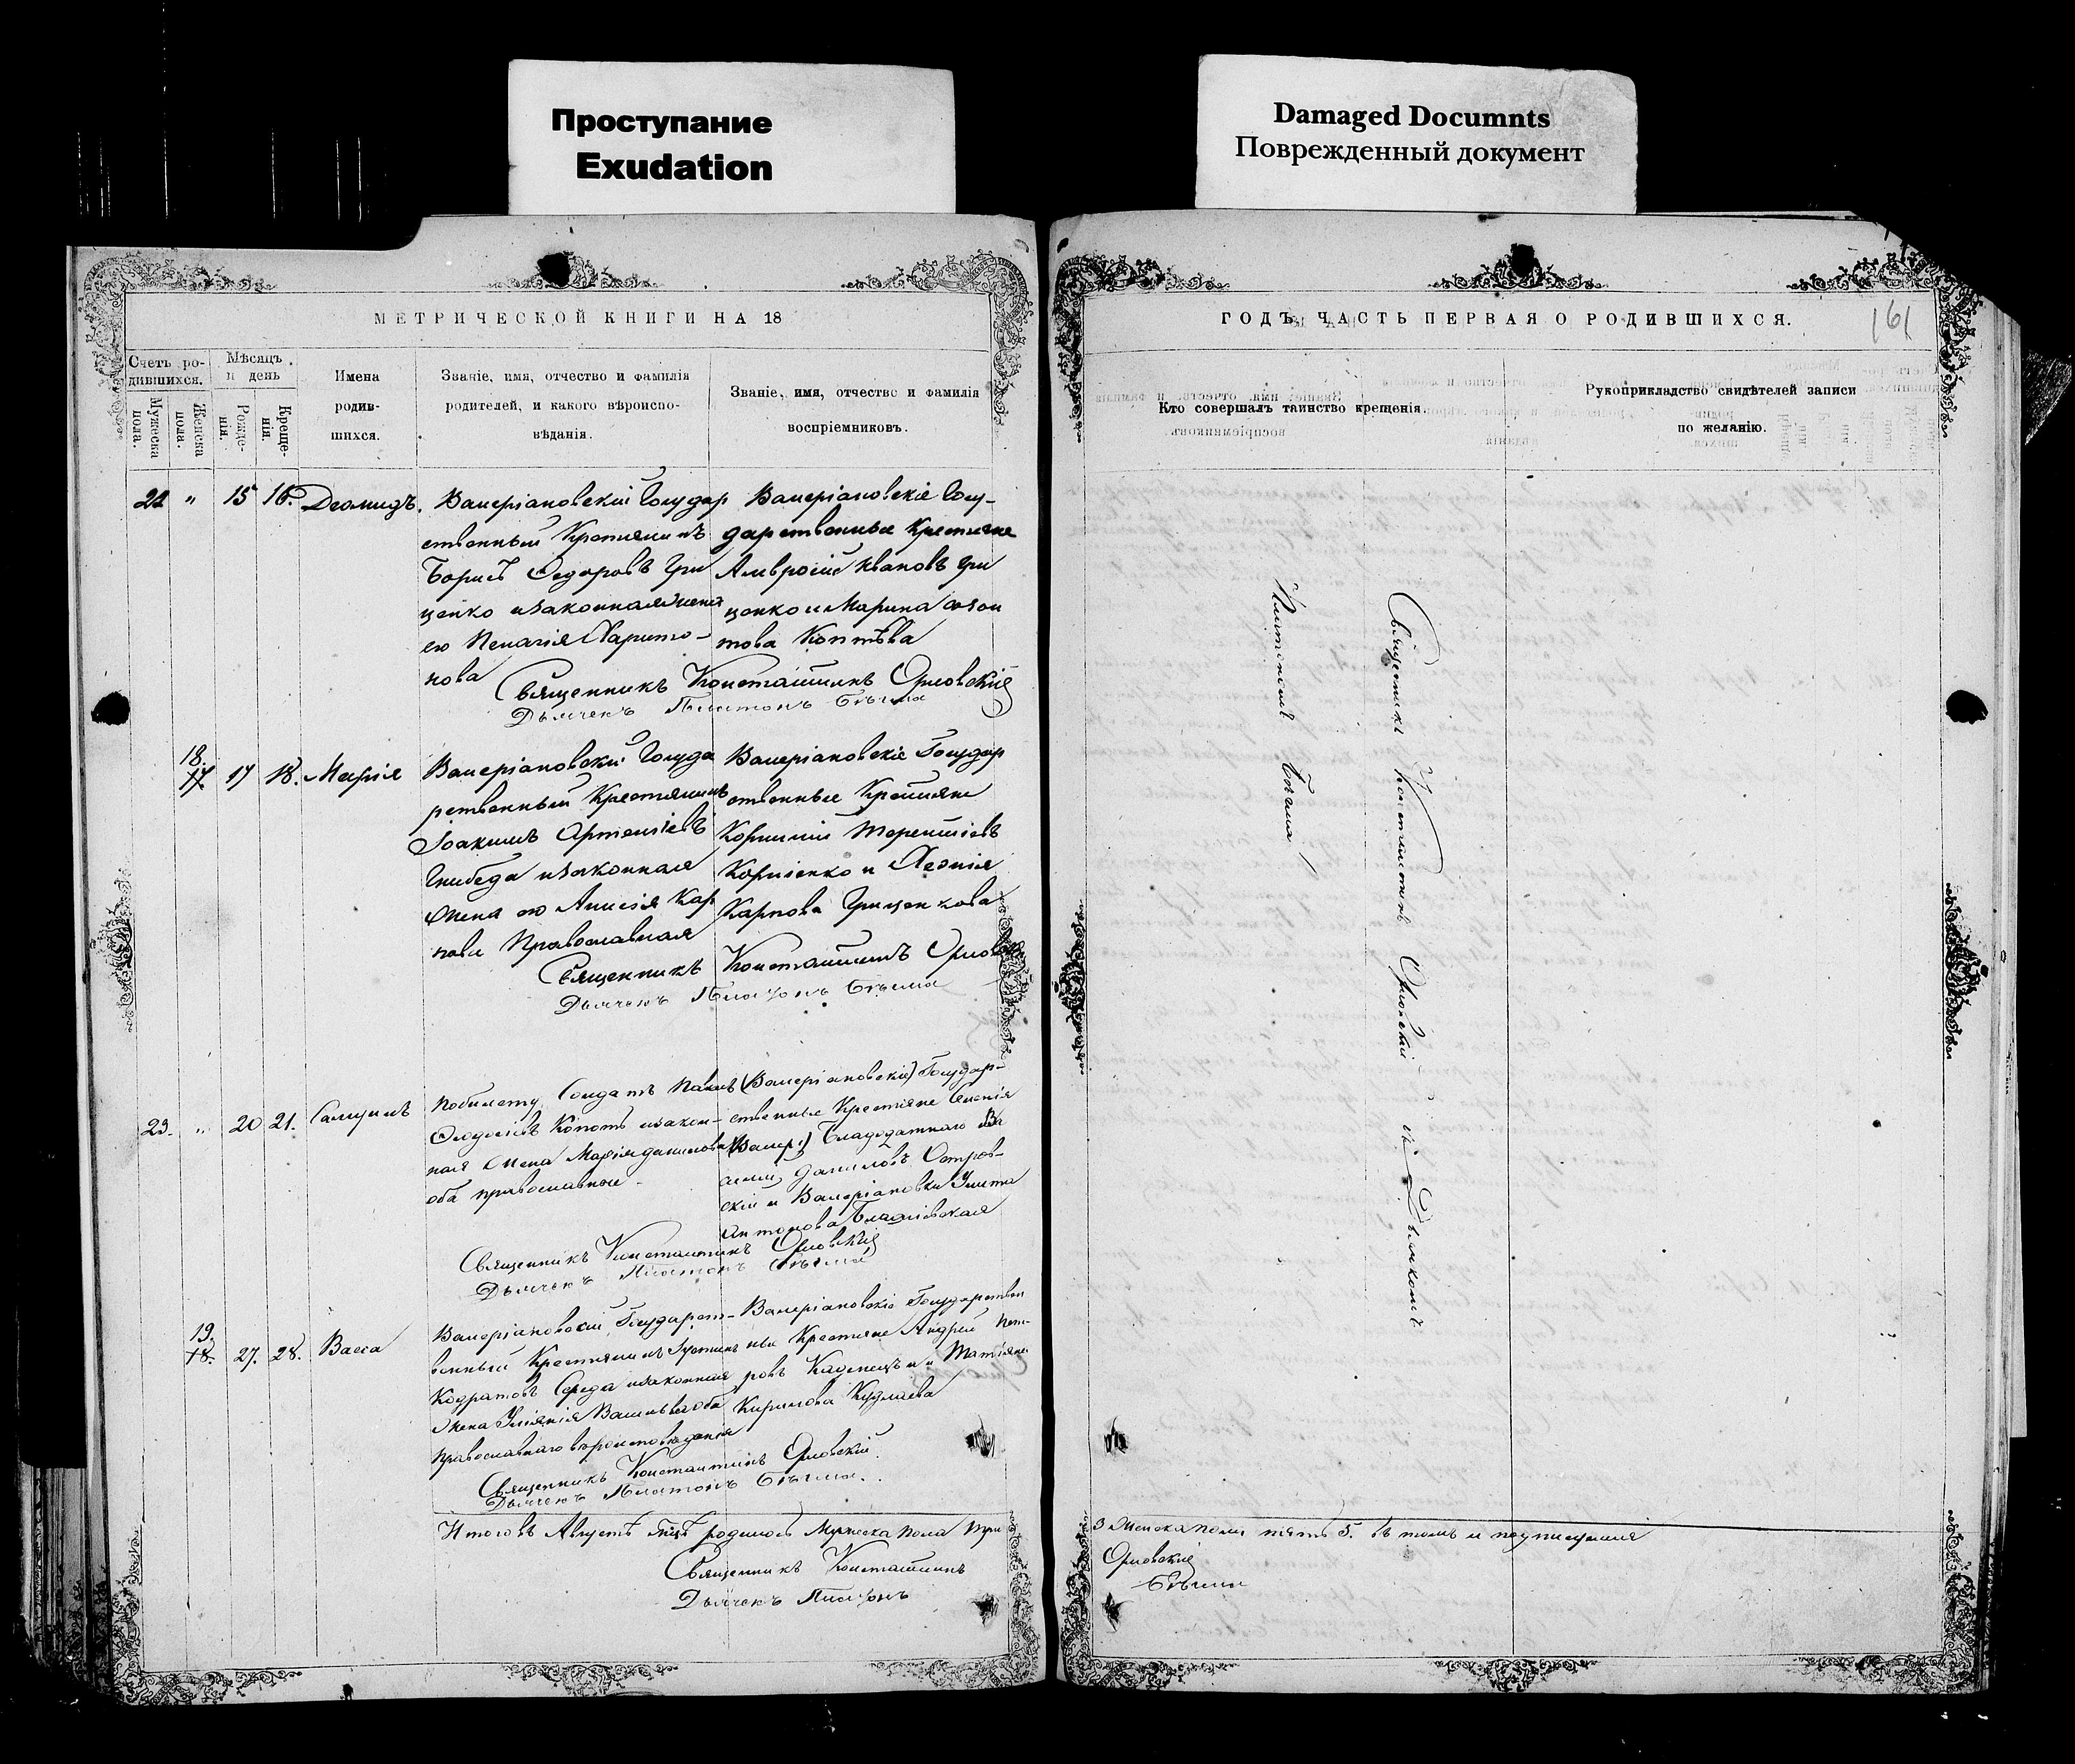 Проступание
Exudation
Damaged Documnts
Поврежденный документ
МЕТРИЧЕСКОЙ КНИГИ НА 18
Счетъ ро-
дившихся.
Мѣсяцъ
и день
Мужеска
пола.
Женска
пола.
Рожде-
нія.
Креще-
нія.
Имена
родив-
шихся.
Званіе, имя, отчество и фамилія
родителей, и какого вѣроиспо-
вѣданія.
Званіе, имя, отчество и фамилія
воспріемниковъ.
22 " 15 16. Деомидъ.
Валеріановскій Государ
ственный Крестянинъ
Борисъ Федоровъ Гри
ценко изаконная жена
его Пелагія Харито-
нова
Валеріановскіе Госу-
дарственные Крестяне
Амвросій Ивановъ Гри
ценко и Марина
това Коптѣва
Священникъ Константинъ Орловскій
Дьячекъ Платонъ Бѣгма
18.
17. 17 18. Марія
Валеріановскій Госуда
рственный Крестянинъ
Іоакимъ Артеміевъ
Гнибеда изаконная
жена его Анисія Кар
пова Православная
Валеріановскіе Государ
ственные Крестяне
Корнилій Терентіевъ
Корніенко и
Карпова Гриценкова
Священникъ Константинъ Орловскій
Дьячекъ Платонъ Бѣгма
23. " 20 21. Самуилъ
побилету Солдатъ Павелъ
Федосіевъ Копотъ изакон-
ная жена Марія данилова
оба православные
(Валеріановскіе) Государ-
ственные Крестяне
(Валер.) Благодатнаго
данилов Остров-
скій и Валеріановки Улита
Антонова
Священникъ Константинъ Орловскій
Дьячекъ Платонъ Бѣгма
19.
18. 27. 28. Васса
Валеріановскій Государст-
венный Крестянинъ Іустинъ
Кодратовъ Середа изаконная
жена Уліянія Васильева оба
Православнаго вѣроисповѣданія
Валеріановскіе Государствен
ные Крестяне Андрей Пет-
ровъ Каденецъ и Татіяна
Кирилова Кудлаева
Священникъ Константинъ Орловскій
Дьячекъ Платонъ Бѣгма.
Итого въ Августѣ м-цѣ родилось Мужеска пола три
Священникъ Константинъ
Дьячекъ Платонъ
ГОДЪ, ЧАСТЬ ПЕРВАЯ О РОДИВШИХСЯ.
161
Кто совершалъ таинство крещенія.
Рукоприкладство свидѣтелей записи
по желанію.
Священникъ Константинъ Орловскій съ Дьячкомъ
Платономъ Бѣгма
3 Женска пола пять 5. Въ томъ и подписуемся
Орловскій
Бѣгма